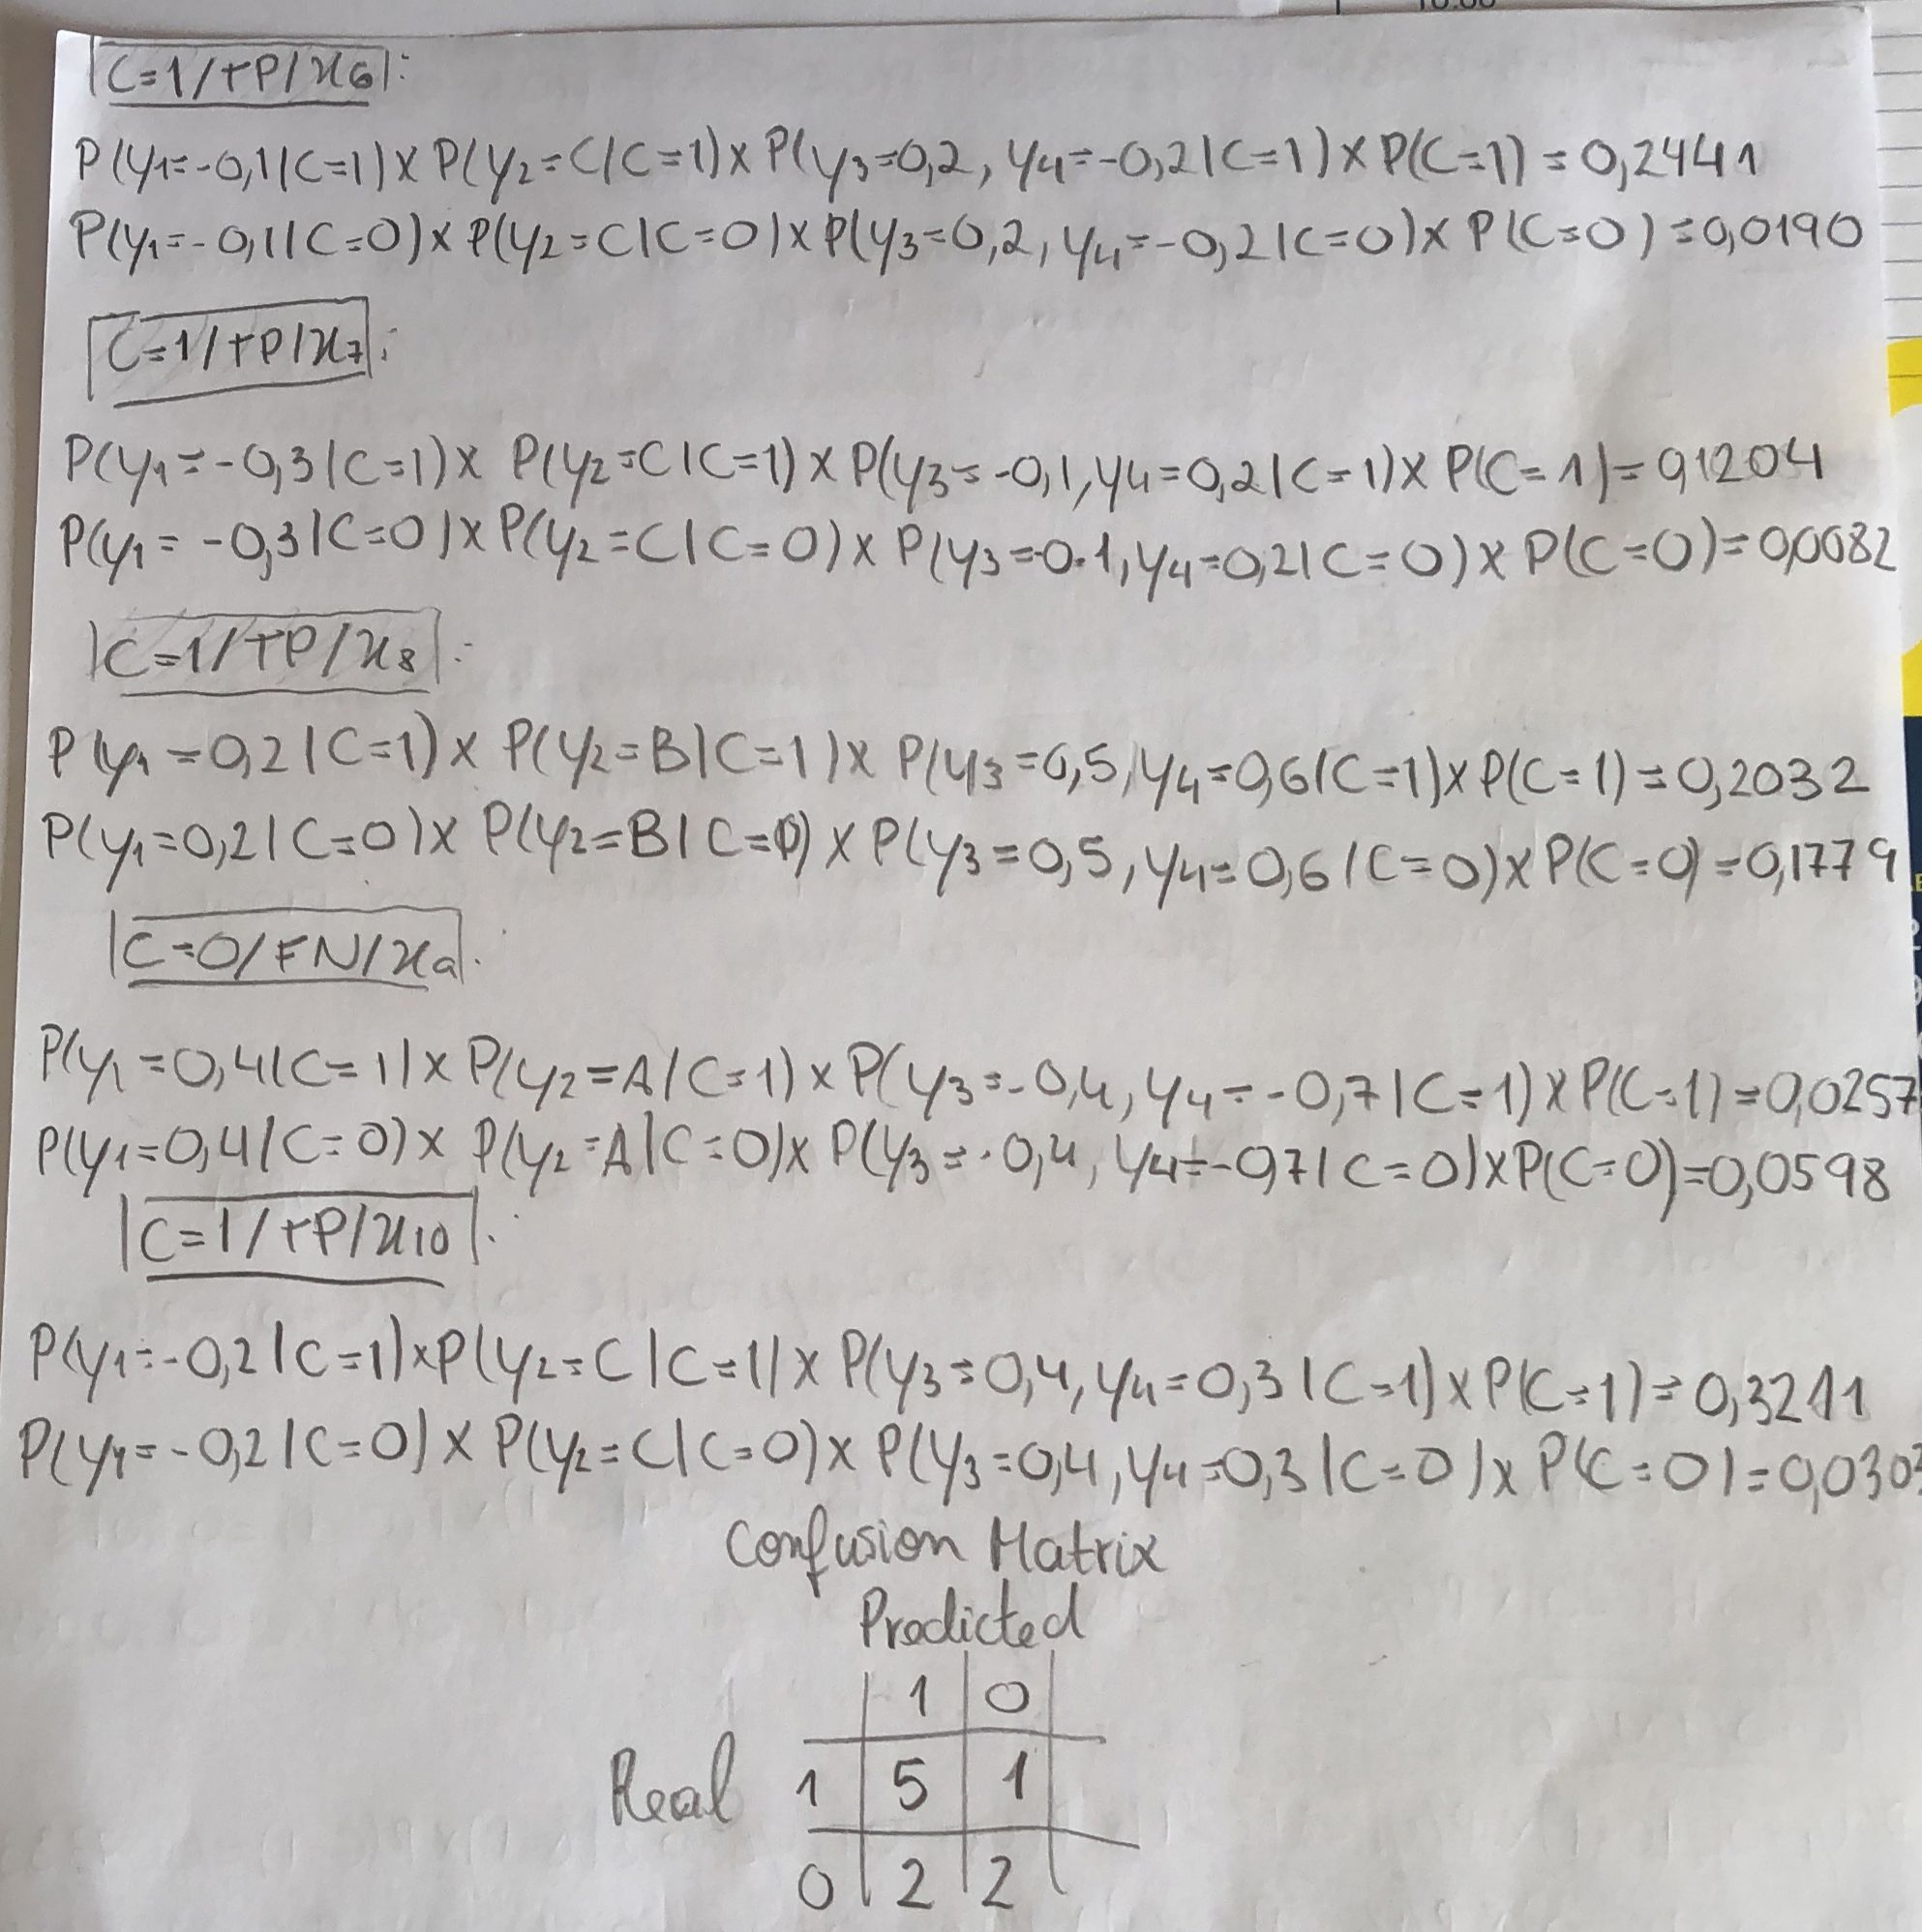 C=1/TP/x6:
P(y1=-0,1|C=1)xP(y2=C|C=1)xP(y3=0,2, y4=-0,2|C=1)xP(C=1)=0,2441
P(y1=-0,1|C=0)xP(y2=C|C=0)xP(y3=0,2, y4=-0,2|C=0)xP(C=0)=0,0190
C=1/TP/x7:
P(y1=-0,3|C=1)x P(y2=C|C=1)xP(y3=-0,1,y4=0,2|C=1)xP(C=1)=0,1204
P(y1=-0,3|C=0)xP(y2=C|C=0)x P(y3=-0.1,y4=0,2|C=0)xP(C=0)=0,0082
C=1/TP/x8:
P(y1=0,2|C=1)x P(y2=B|C=1)x P(y3=0,5,y4=0,6|C=1)xP(C=1)=0,2032
P(y1=0,2|C=0)x P(y2=B|C=0)xP(y3=0,5,y4=0,6|C=0)xP(C=0)=0,1779
C=0/FN/x9:
P(y1=0,4|C=1)xP(y2=A|C=1)xP(y3=-0,4, y4=-0,7|C=1)xP(C=1)=0,0257
P(y1=0,4|C=0)x P(y2=A|C=0)xP(y3=-0,4, y4=-0,7|C=0)xP(C=0)=0,0598
C=1/TP/x10:
P(y1=-0,2|C=1)xP(y2=C|C=1)xP(y3=0,4,y4=0,3|C=1)xP(C=1)=0,3211
P(y1=-0,2|C=0)xP(y2=C|C=0)xP(y3=0,4,y4=0,3|C=0)xP(C=0)=0,0303
Confusion Matrix
Predicted
1 0
Real 1 5 1
0 2 2